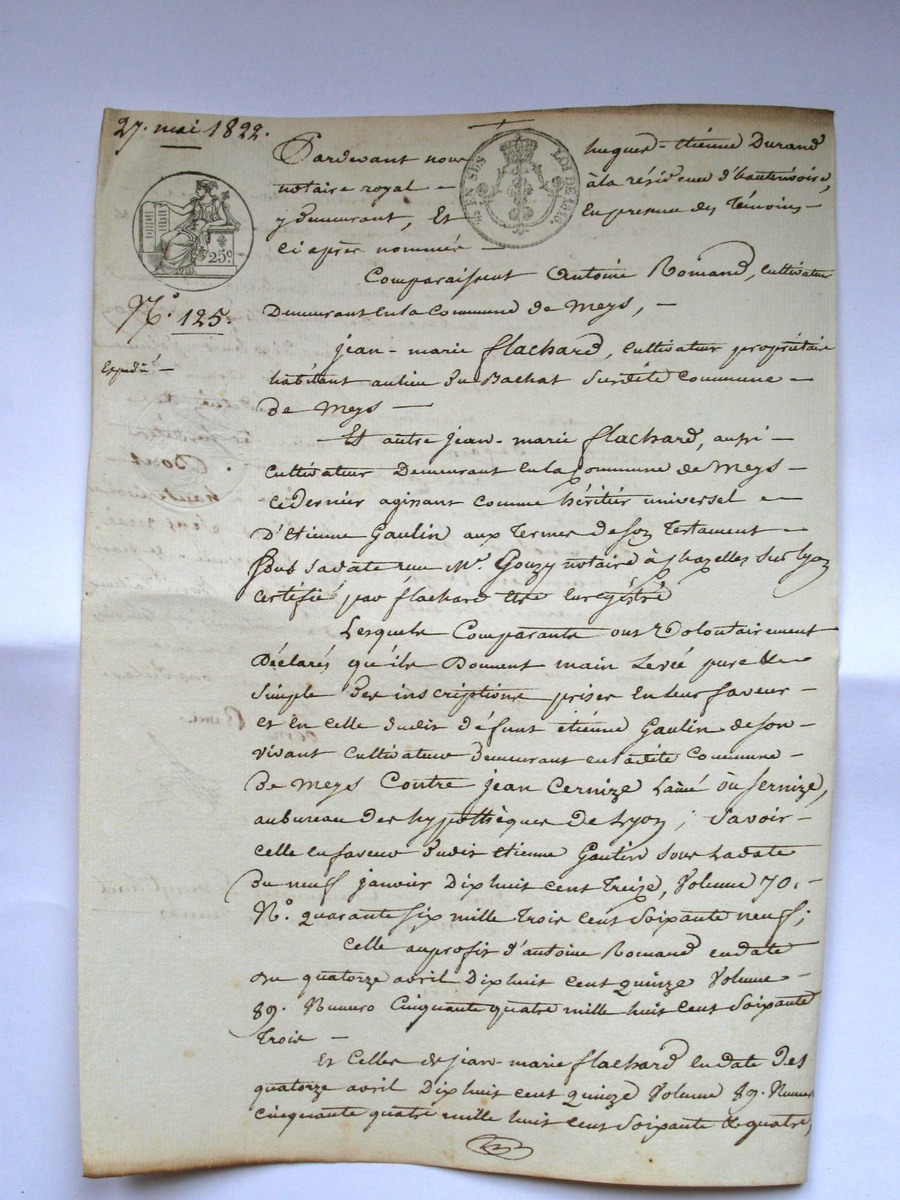 27. mai 1822.
Pardevant nous hugues-étiénne Durand
notaire royal à la résidence d'hauterivoire,
y demeurant, Et En presence des Témoins
ci après nommés
25c.
LOI DE 1816
N.° 125.
Comparaissent Antoine Romand, cultivateur
Demeurant en la Commune de Meys,
Jean-marie flachard, cultivateur propriétaire
habitant au lieu du Bachat sur dité Commune
de Meys
Et autre Jean-marie flachard, aussi
cultivateur Demeurant en la Commune de Meys
ce dernier agissant comme héritier universel
D'Etienne Gaulin aux Termes de son Testament
sous sa date reçu Me. Gouzy notaire à Chazelles sur Lyon
certifié par flachard être Enregistré
Lesquels Comparants ont Volontairement
Déclarés qu'ils Donnent main Levée pure &
simple des inscriptions prises en leur faveur
et en celle dudit défunt étiénne Gaulin de son
vivant cultivateur demeurant en ladite Commune
de Meys Contre jean Cernize L'aîné ou Sernize,
au bureau des hypothèques de Lyon ; Savoir
celle en faveur dudit étienne Gaulin sous la date
du neuf janvier Dix huit cent Treize, Volume 70.
N.° quarante six mille Trois cent soixante neuf ;
Celle au profit d'antoine Romand en date
du quatorze avril Dix huit cent quinze Volume
89. Numero Cinquante quatre mille huit cent soixante
Trois
Et Celles de jean-marie flachard en date des
quatorze avril Dix huit cent quinze Volume 89. Numero
cinquante quatre mille huit cent soixante & quatre,